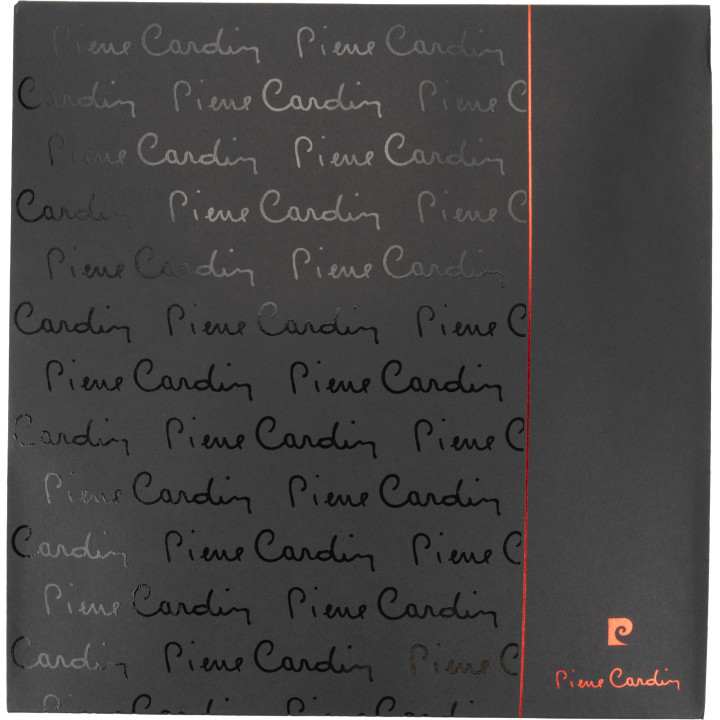 Pierre Cardin Pierre Cardin
Cardin Pierre Cardin Pierre C
Pierre Cardin Pierre Cardin
Cardin Pierre Cardin Pierre C
Pierre Cardin Pierre Cardin
Cardin Pierre Cardin Pierre C
Pierre Cardin Pierre Cardin
Cardin Pierre Cardin Pierre C
Pierre Cardin Pierre Cardin
Cardin Pierre Cardin Pierre C
Pierre Cardin Pierre Cardin
Cardin Pierre Cardin Pierre C
Pierre Cardin Pierre Cardin
P
Pierre Cardin